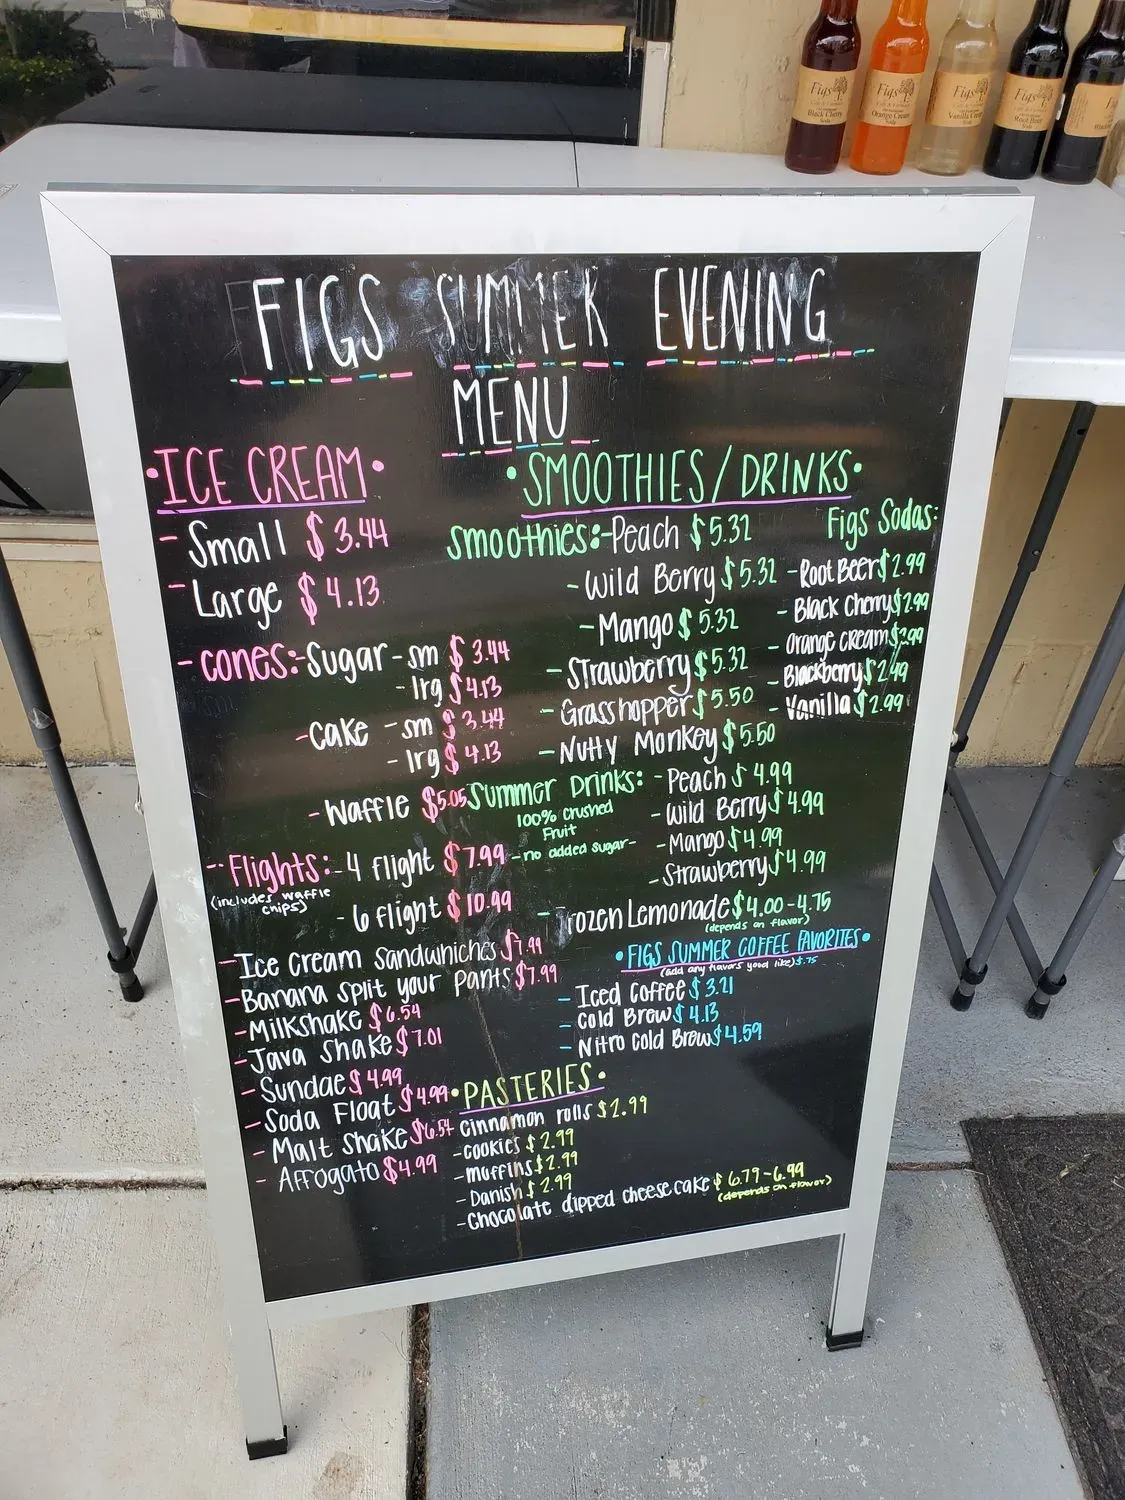 Figs
Black Cherry
Soda
Figs
Orange Cream
Soda
Figs
Vanilla Cream
Soda
Figs
Root Beer
Soda
Figs
FIGS SUMMER EVENING
MENU
•ICE CREAM•
- Small $3.44
- Large $4.13
- cones:-Sugar-sm $3.44
-lrg $4.13
-cake -sm $3.44
-lrg $4.13
-Waffle $5.05
-Flights:-4 flight $7.99
(includes waffle
chips)
-6 flight $10.99
-Ice cream sandwhiches $7.99
-Banana split your pants $7.99
-Milkshake $6.54
-Java Shake $7.01
-Sundae $4.99
-Soda Float $4.99
-Malt Shake $6.54
-Affogato $4.99
•SMOOTHIES/DRINKS•
Smoothies:-Peach $5.32
-Wild Berry $5.32
-Mango $5.32
-Strawberry $5.32
-Grasshopper $5.50
-Nutty Monkey $5.50
Figs Sodas:
-Root Beer $2.99
-Black Cherry $2.99
-Orange cream $2.99
-Blackberry $2.99
-Vanilla $2.99
Summer Drinks: -Peach $4.99
100% crushed
Fruit
-no added sugar-
-Wild Berry $4.99
-Mango $4.99
-Strawberry $4.99
-Frozen Lemonade $4.00-4.75
(depends on flavor)
•FIGS SUMMER COFFEE FAVORITES•
(add any flavors youd like) $.75
-Iced Coffee $3.21
-Cold Brew $4.13
-Nitro Cold Brew $4.59
•PASTERIES•
cinnamon rolls $2.99
-cookies $2.99
-muffins $2.99
-Danish $2.99
-Chocolate dipped cheesecake $6.79-6.99
(depends on flavor)